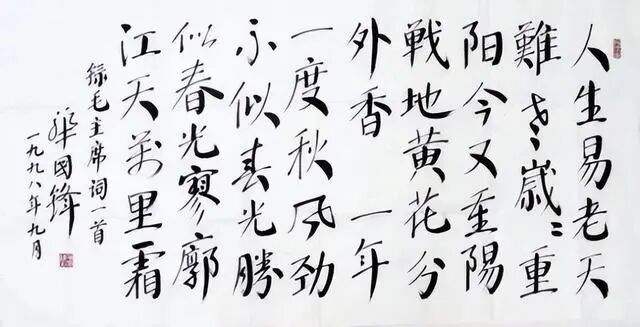 人生易老天
難老歲〻重
陽今又重陽
戦地黄花分
外香 一年
一度秋风劲
不似春光勝
似春光寥廓
江天萬里霜
録毛主席词一首
華國鋒
一九九八年九月